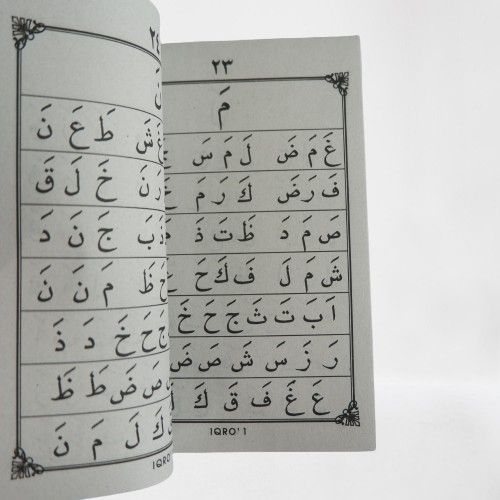 ٢٣
مَ
غَ مَ ضَ لَ مَ سَ
فَ رَ ضَ كَ رَ مَ
صَ مَ دَ ظَ تَ ذَ
شَ مَ لَ فَ كَ حَ
اَ بَ تَ ثَ جَ حَ خَ
رَ زَ سَ شَ صَ ضَ
عَ غَ فَ قَ كَ
IQRO' 1
٢٤
نَ
شَ طَ عَ نَ
رَ نَ خَ لَ قَ
بَ جَ نَ دَ
ظَ مَ نَ نَ
جَ حَ خَ دَ ذَ
صَ ضَ طَ ظَ
كَ لَ مَ نَ
IQRO'